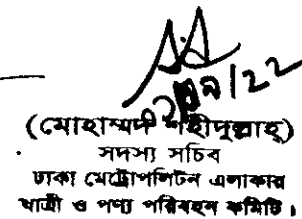 ০২/০৭/২২
(মোহাম্মদ শহীদুল্লাহ্)
সদস্য সচিব
ঢাকা মেট্রোপলিটন এলাকার
যাত্রী ও পণ্য পরিবহন কমিটি।